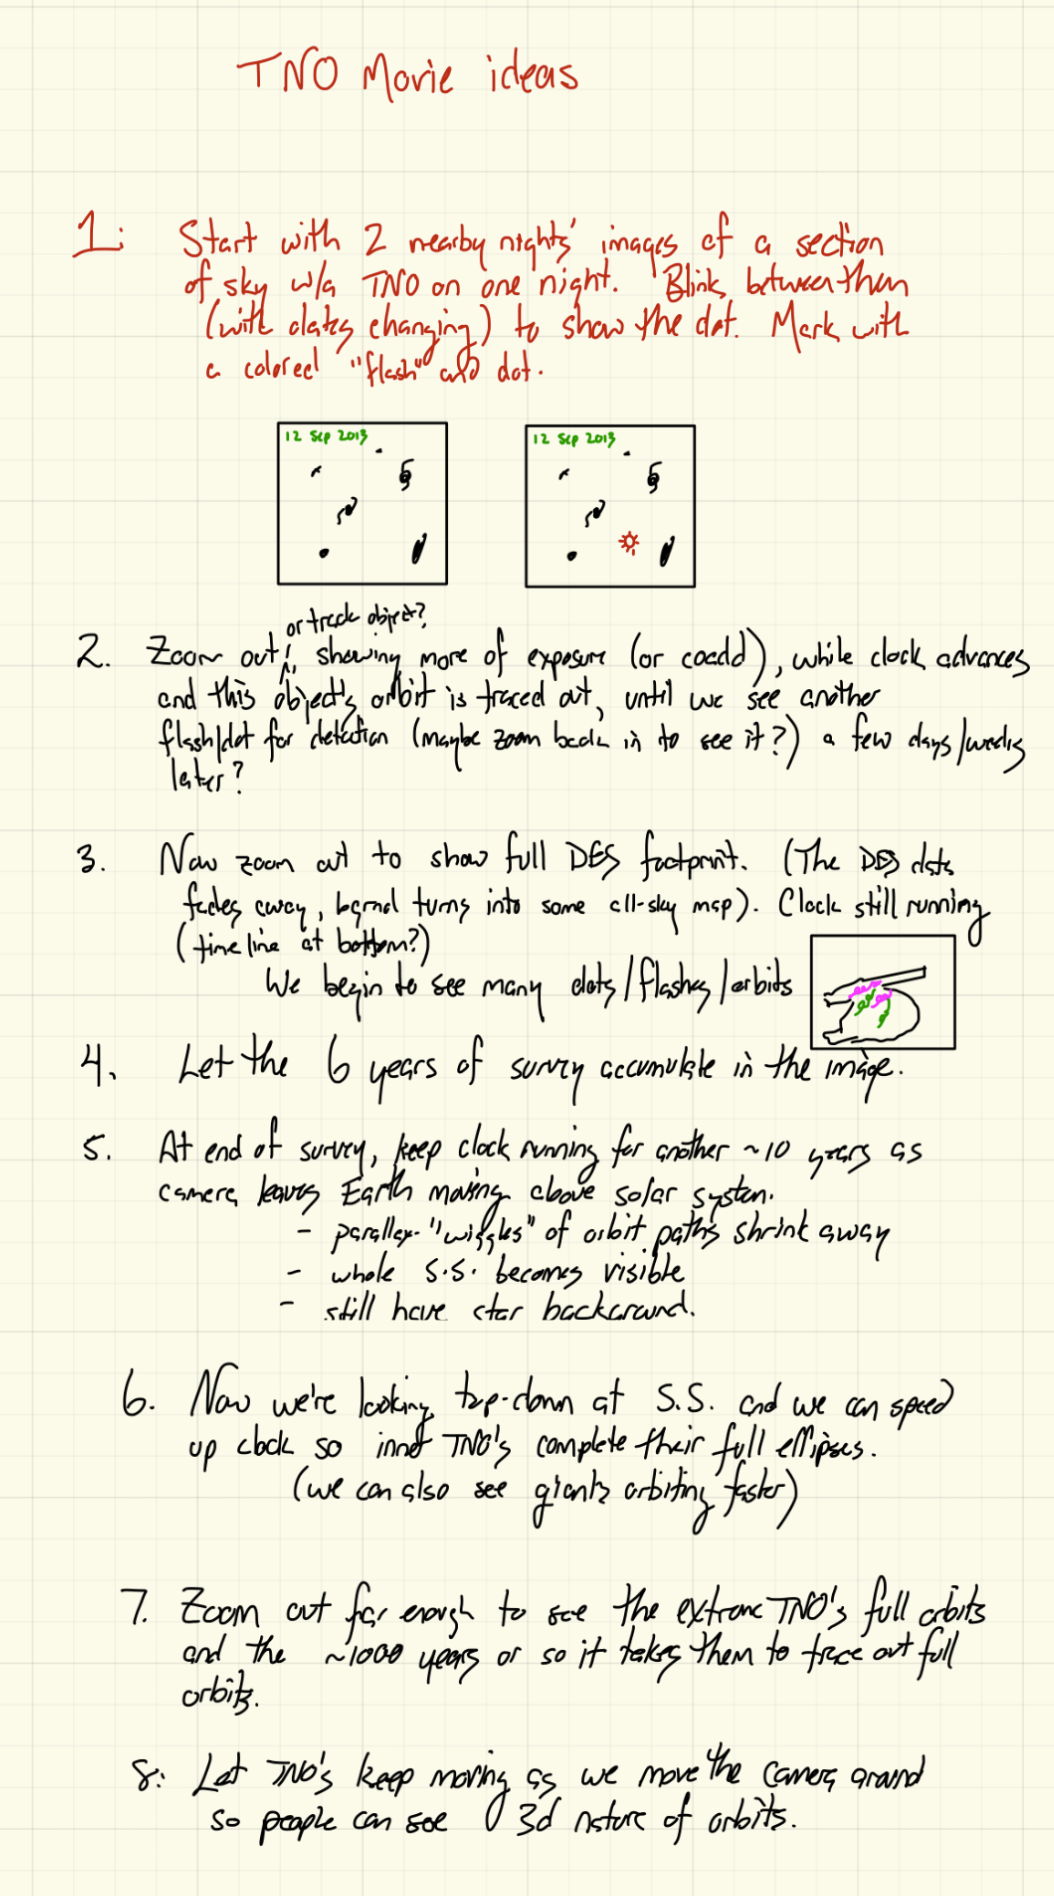 TNO Movie ideas
1: Start with 2 nearby nights' images of a section
of sky w/a TNO on one night. Blink between them
(with dates changing) to show the dot. Mark with
a colored "flash" and dot.
12 Sep 2013
12 Sep 2013
or track object?
2. Zoom out, showing more of exposure (or coadd), while clock advances
and this object's orbit is traced out, until we see another
flash/dot for detection (maybe zoom back in to see it?) a few days/weeks
later?
3. Now zoom out to show full DES footprint. (The DES data
fades away, bgrnd turns into some all-sky map). Clock still running
(timeline at bottom?)
We begin to see many dots/flashes/orbits
4. Let the 6 years of survey accumulate in the image.
5. At end of survey, keep clock running for another ~10 years as
camera leaves Earth moving above solar system.
- parallax "wiggles" of orbit paths shrink away
- whole S.S. becomes visible
- still have star background.
6. Now we're looking top-down at S.S. and we can speed
up clock so inner TNO's complete their full ellipses.
(we can also see giants orbiting faster)
7. Zoom out far enough to see the extreme TNO's full orbits
and the ~1000 years or so it takes them to trace out full
orbits.
8: Let TNO's keep moving as we move the camera around
so people can see 3d nature of orbits.